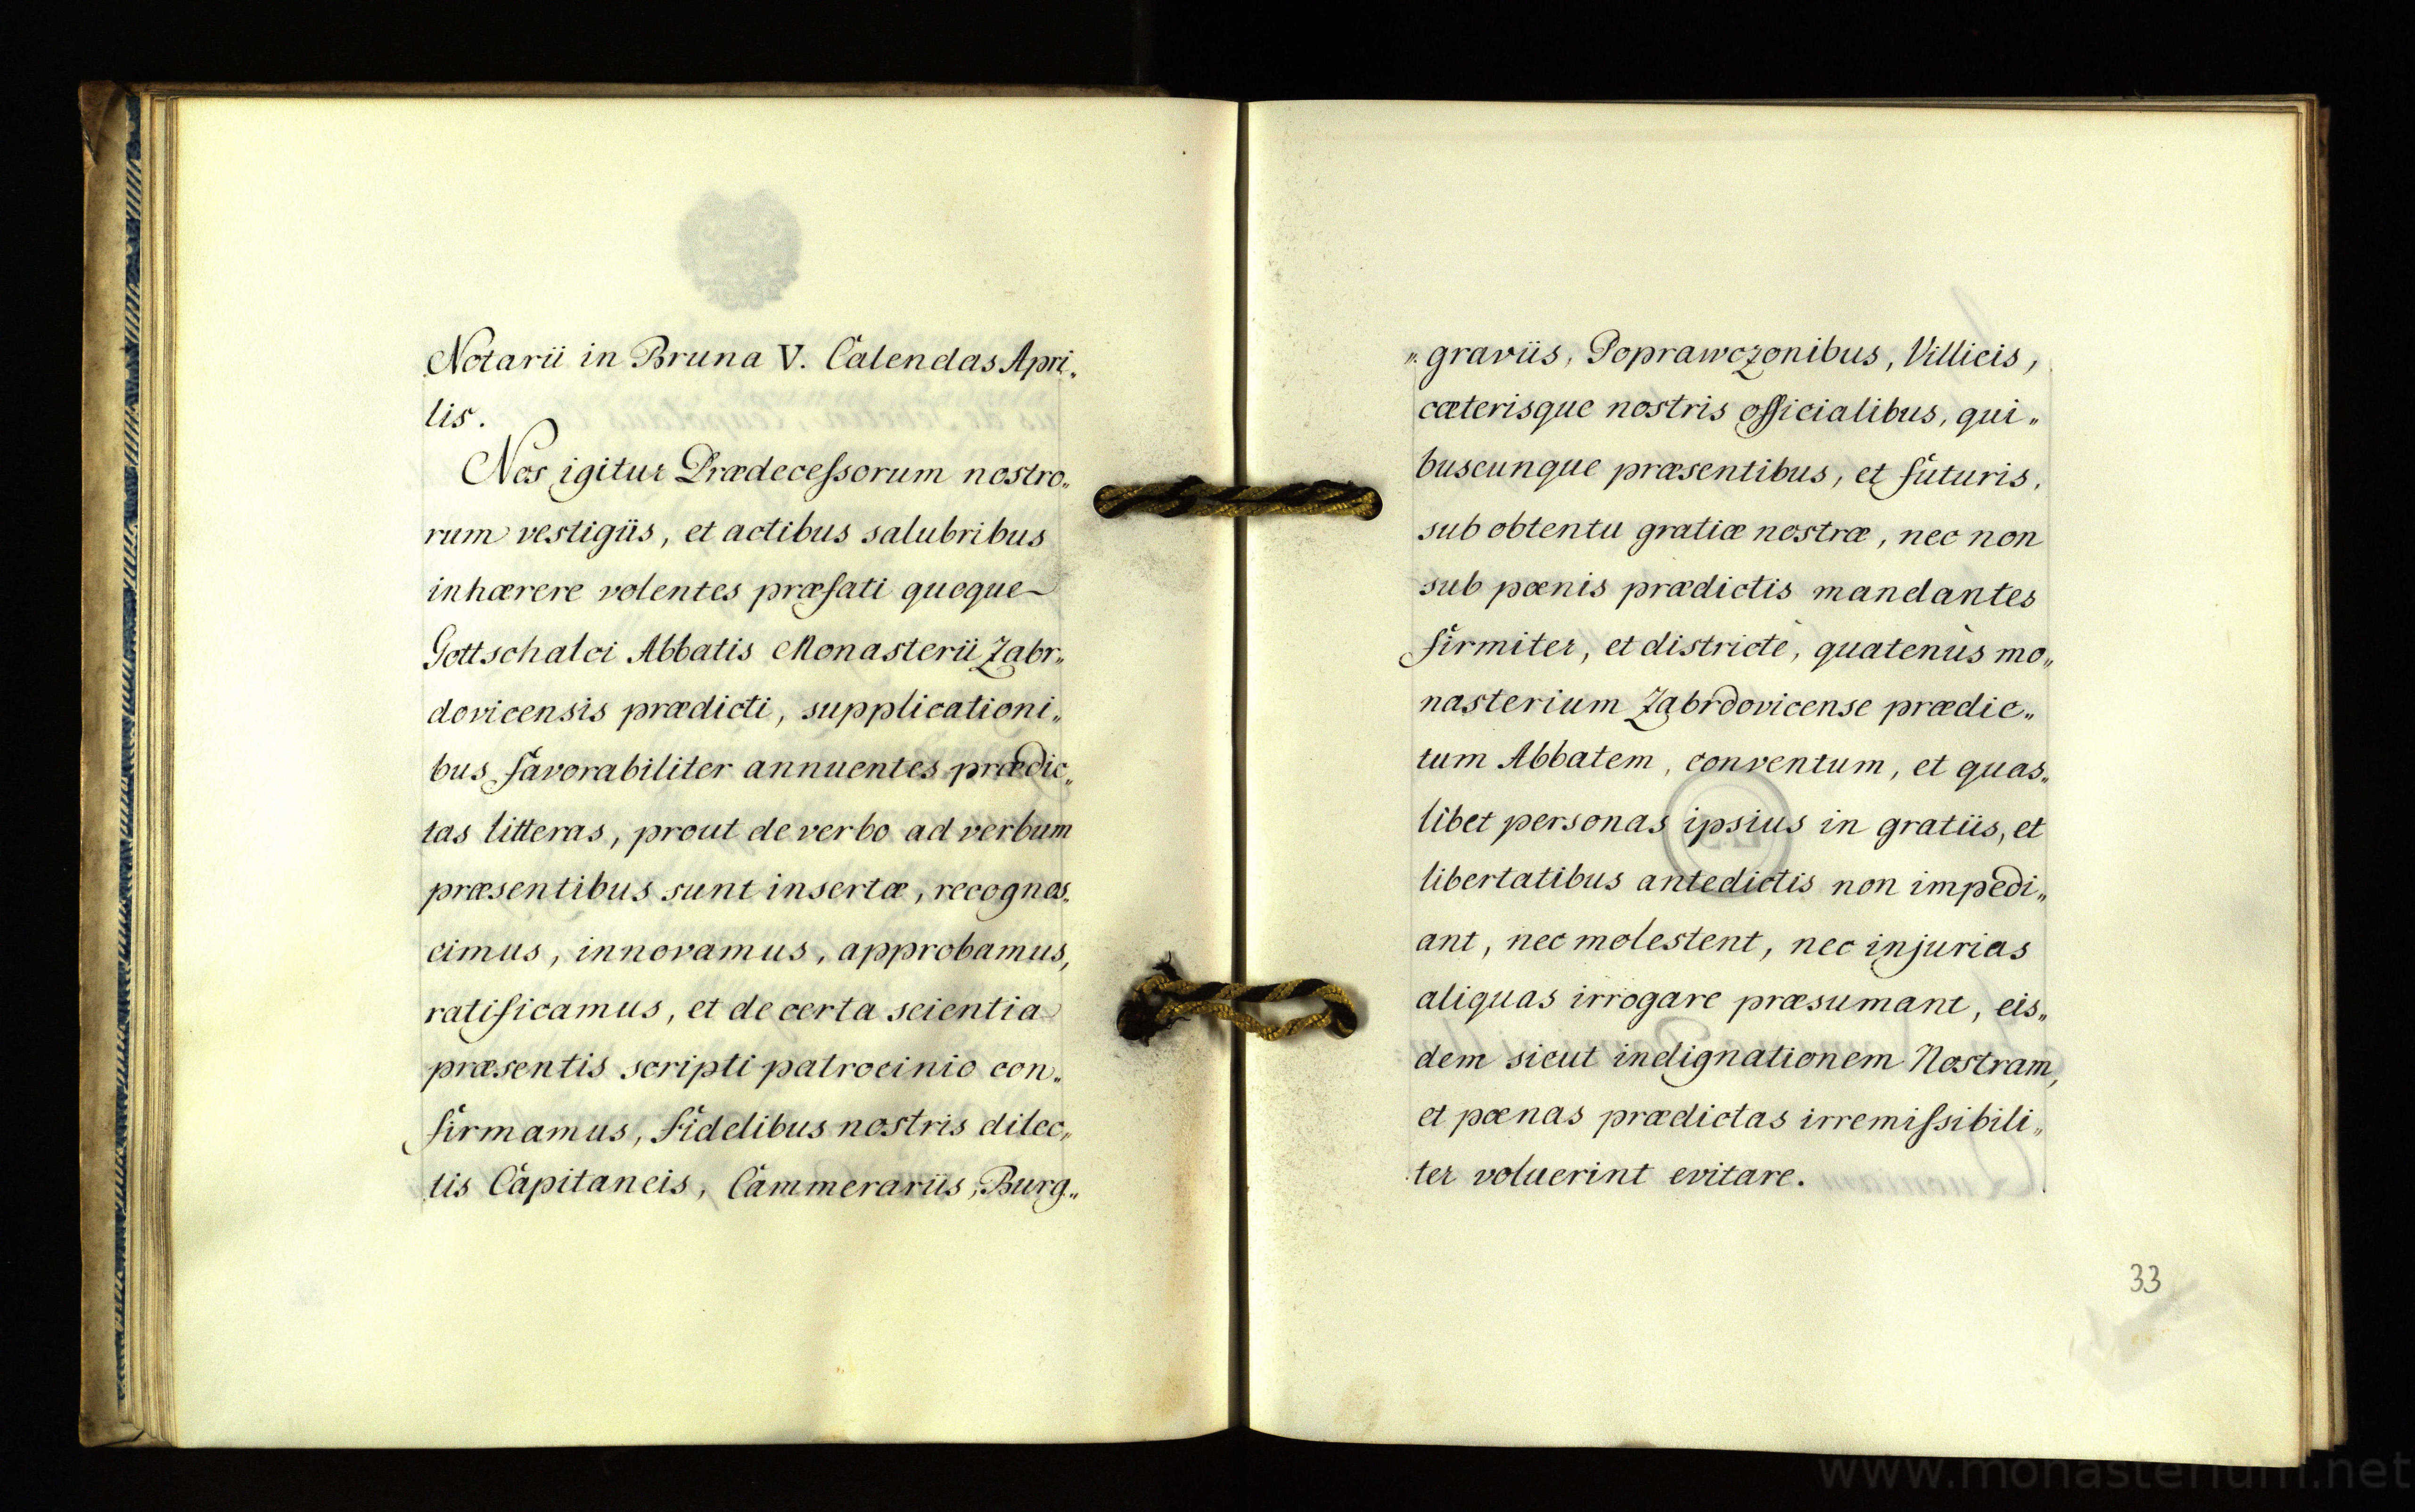 Notarii in Bruna V. Calendas Apri„
lis.
Nos igitur Prædecessorum nostro„
rum vestigiis, et actibus salubribus
inhærere volentes præfati quoque
Gottschalci Abbatis Monasterii Zabr„
dovicensis prædicti, supplicationi„
bus favorabiliter annuentes prædic„
tas litteras, prout de verbo ad verbum
præsentibus sunt insertæ, recognos„
cimus, innovamus, approbamus,
ratificamus, et de certa scientia
præsentis scripti patrocinio con„
firmamus, Fidelibus nostris dilec„
tis Capitaneis, Cammerariis, Burg„
„graviis, Poprawczonibus, Villicis,
cæterisque nostris officialibus, qui„
buscunque præsentibus, et futuris,
sub obtentu gratiæ nostræ, nec non
sub pœnis prædictis mandantes
firmiter, et districtè, quatenùs mo„
nasterium Zabrdovicense prædic„
tum Abbatem, conventum, et quas„
libet personas ipsius in gratiis, et
libertatibus antedictis non impedi„
ant, nec molestent, nec injurias
aliquas irrogare præsumant, eis„
dem sicut indignationem Nostram,
et pœnas prædictas irremissibili„
ter voluerint evitare.
33
www.monasterium.net